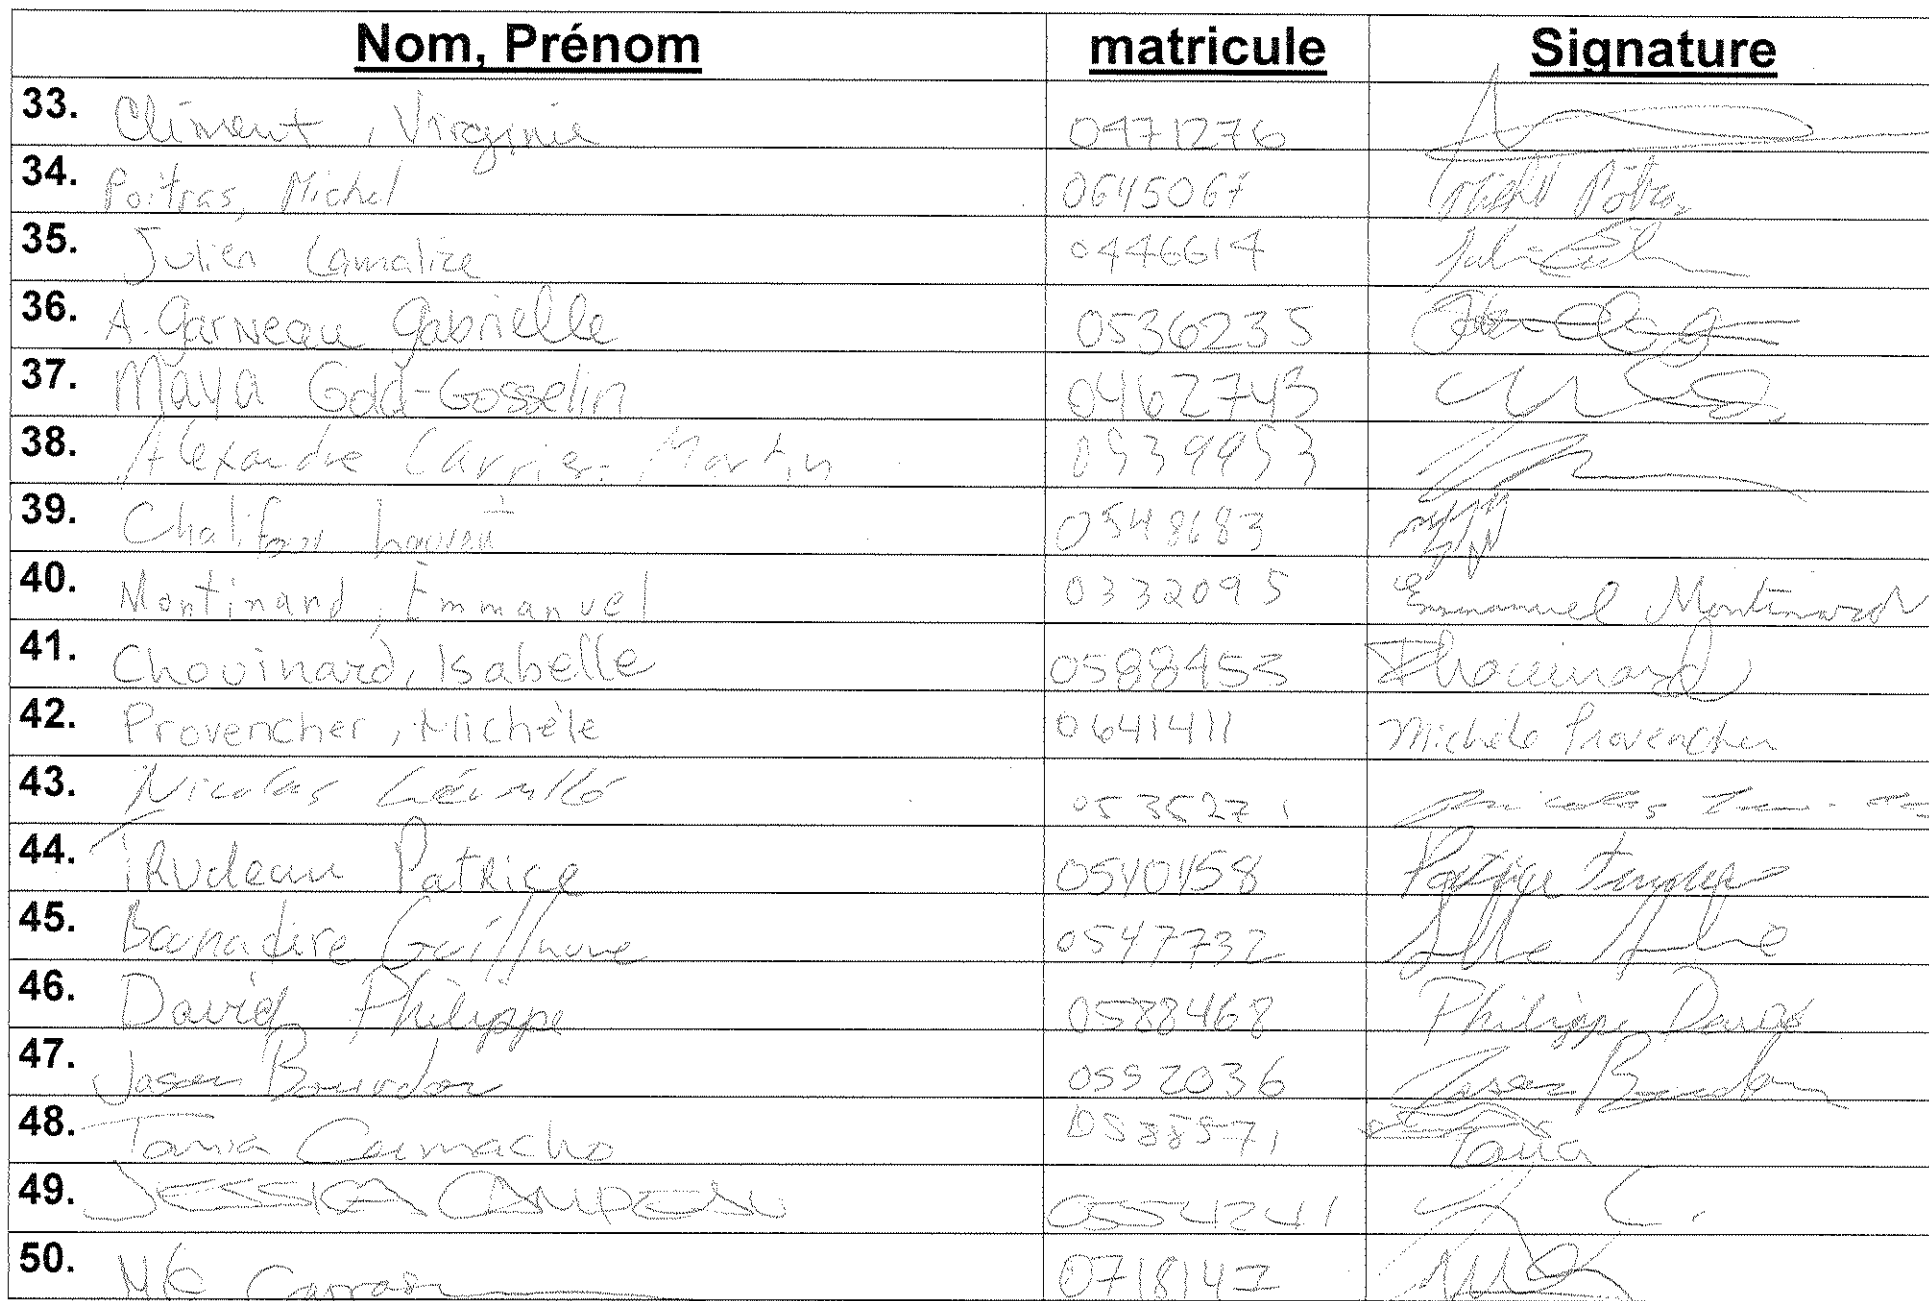 Nom, Prénom matricule Signature
33. Climent, Virginie 0471276
34. Poitras, Michel 0645067 Michel Poitras
35. Julien Lamalice 0446614
36. A. Garneau Gabrielle 0536235
37. Maya Gold-Gosselin 0462743
38. Alexandre Carrier-Martin 0539953
39. Chalifour Laurent 0548683
40. Montinard, Emmanuel 0332095 Emmanuel Montinard
41. Chouinard, Isabelle 0588453 IChouinard
42. Provencher, Michèle 0641411 Michèle Provencher
43. Nicolas Léveillé 0535271 Nicolas
44. TRudeau PatRice 0540458 Patrice Trudeau
45. Guillaume 0547732
46. David Philippe 0588468 Philippe David
47. Jason Bourdon 0592036 Jason Bourdon
48. Tania Camacho 0588571 Tania
49. JESSICA CAMPEAU 0554241 J C.
50. 0718147